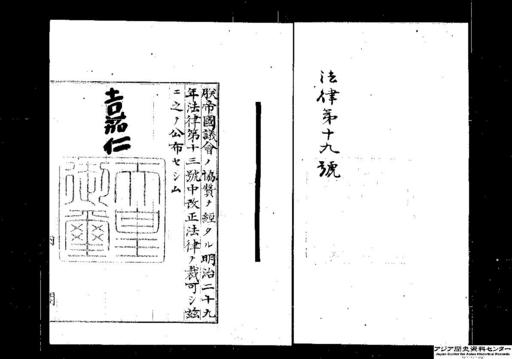 法律第十九號
朕帝國議會ノ協賛ヲ經タル明治二十九
年法律第十三號中改正法律ヲ裁可シ茲
ニ之ヲ公布セシム
嘉仁
天皇
御璽
内
閣
アジア歴史資料センター
Japan Center for Asian Historical Records